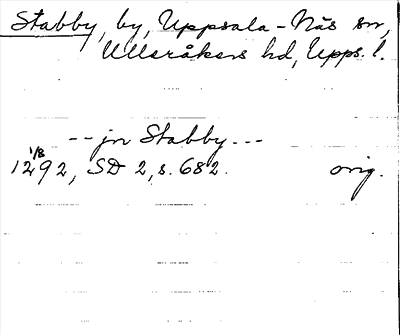 Stabby, by, Uppsala-Näs sn,
Ulleråkers hd, Upps. l.
--jn Stabby---
1/8
1292, SD 2, s. 682. orig.